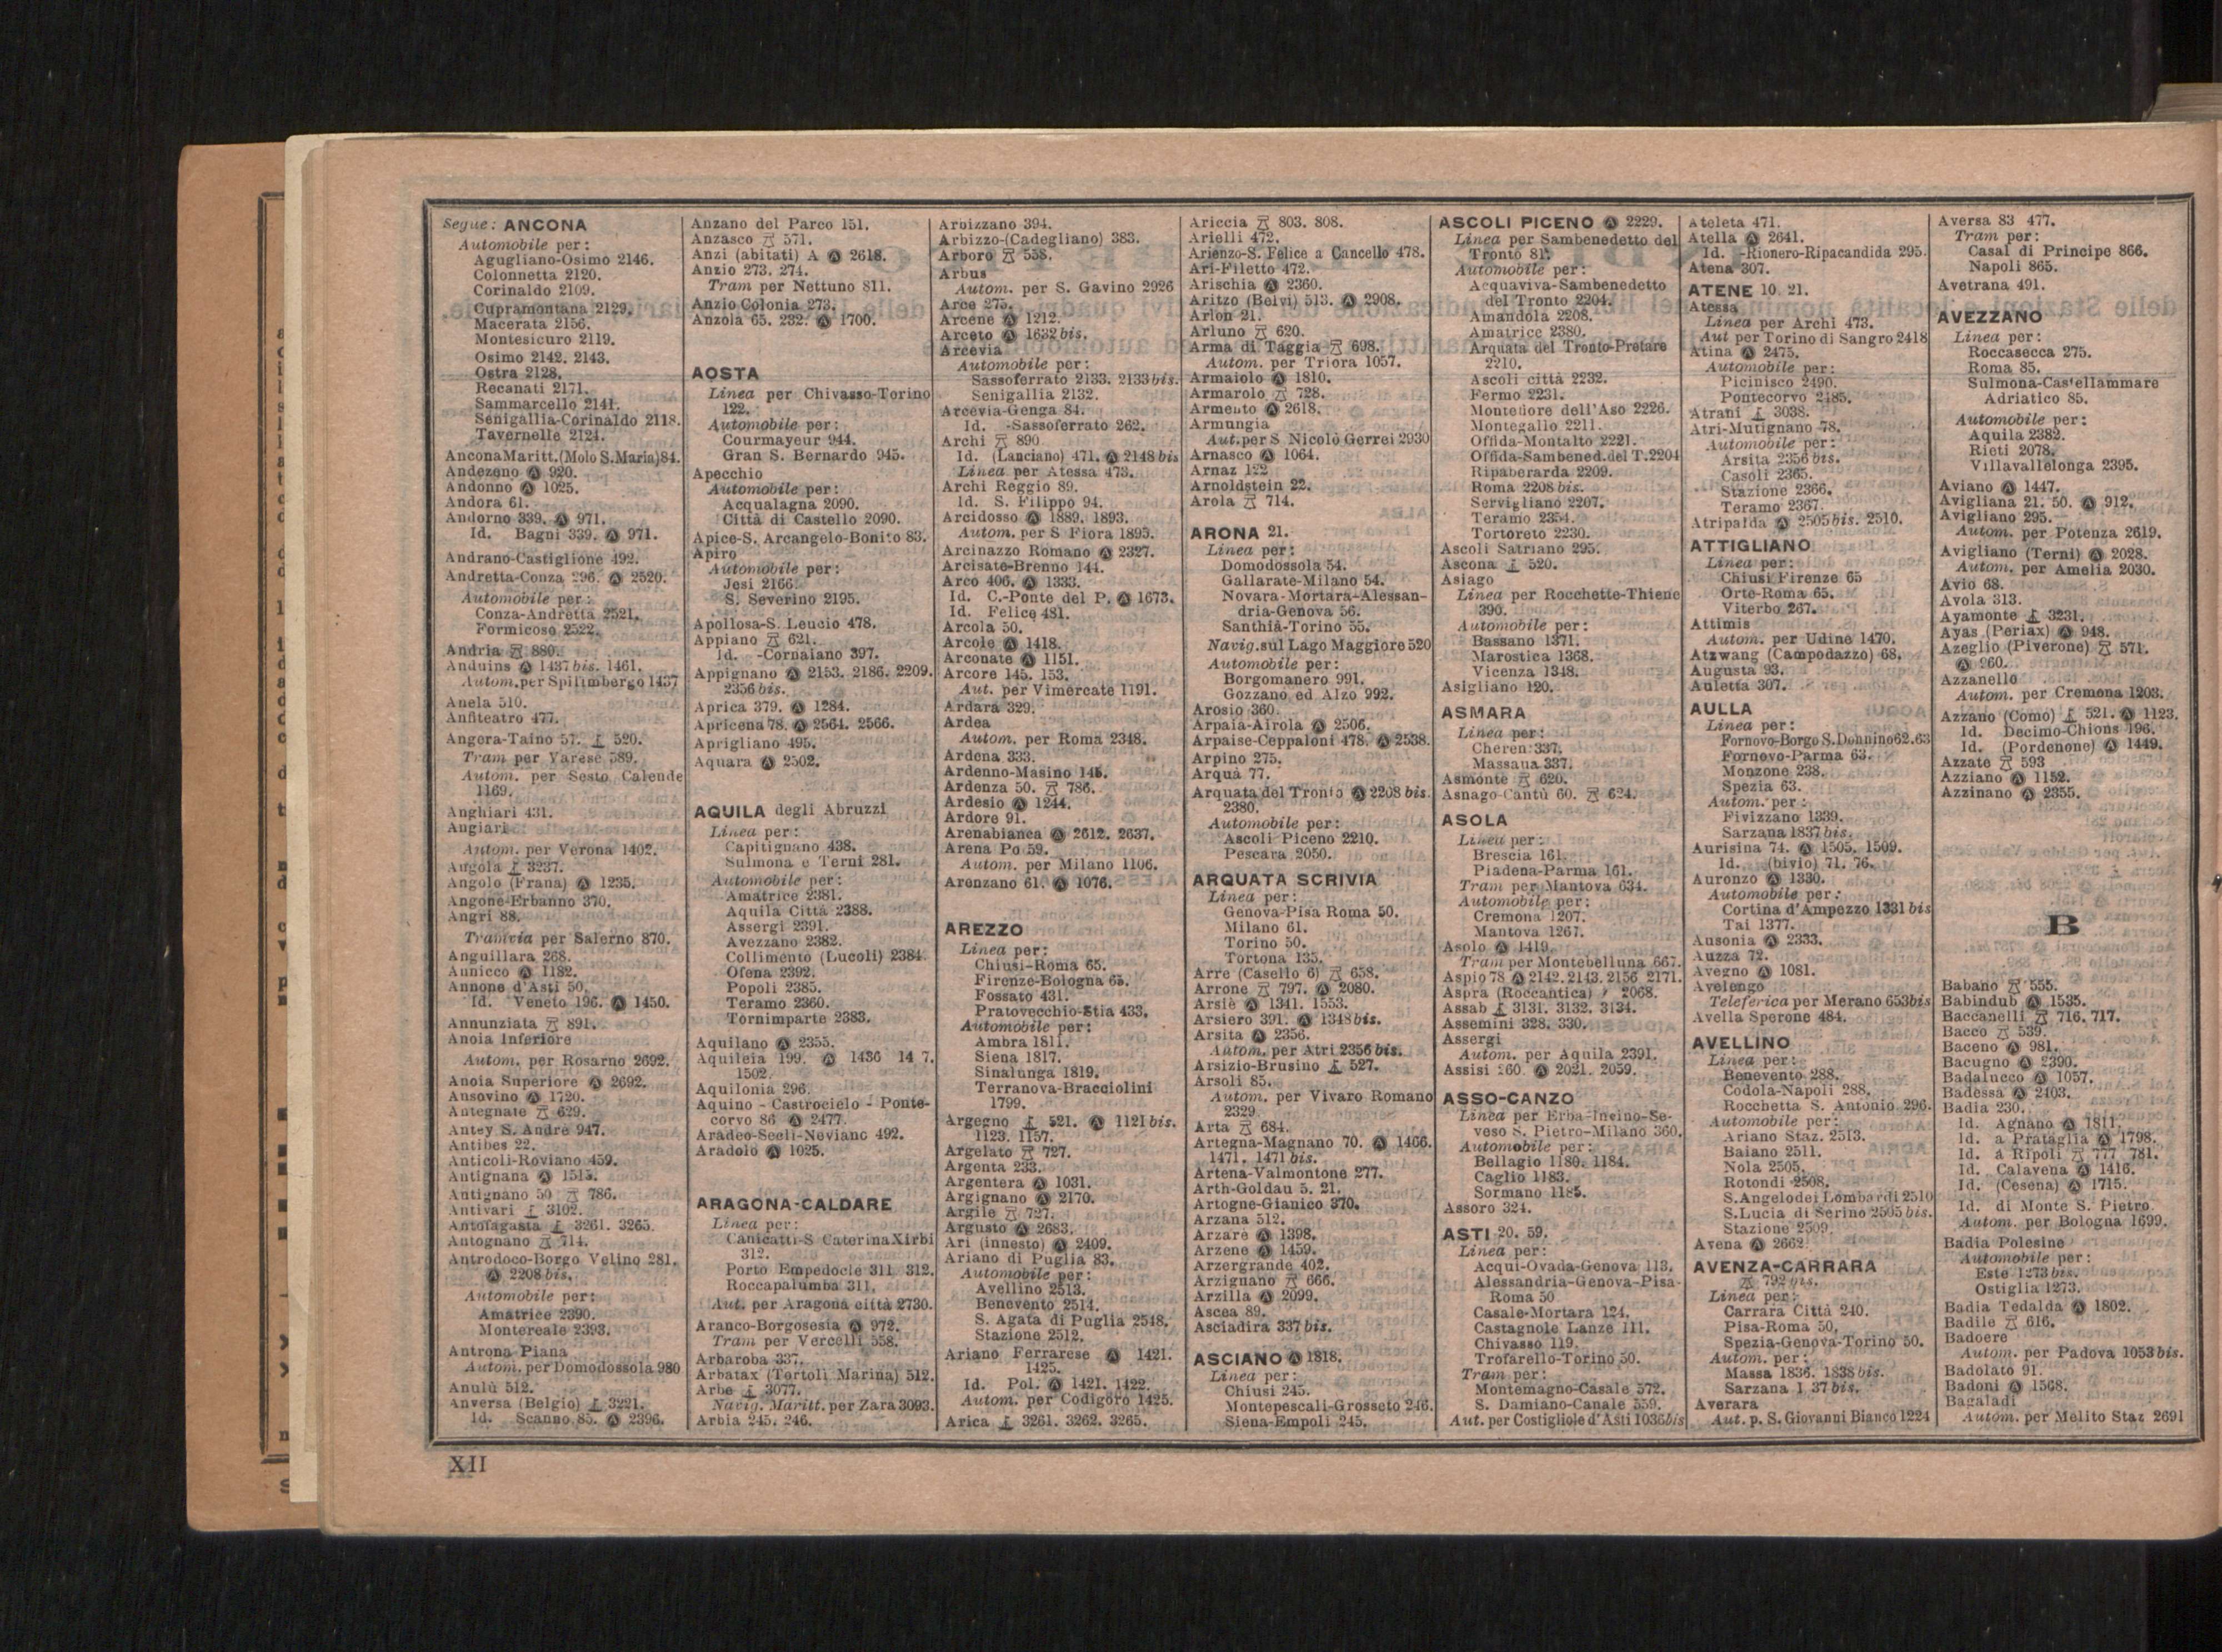 Segue: ANCONA
Automobile per:
Agugliano-Osimo 2146.
Colonnetta 2120.
Corinaldo 2109.
Cupramontana 2129.
Macerata 2156.
Montesicuro 2119.
Osimo 2142. 2143.
Ostra 2128.
Recanati 2171.
Sammarcello 2141.
Senigallia-Corinaldo 2118.
Tavernelle 2124.
Ancona Maritt. (Molo S. Maria) 84.
Andezeno Ⓐ 920.
Andonno Ⓐ 1025.
Andora 61.
Andorno 339. Ⓐ 971.
Id. Bagni 339. Ⓐ 971.
Andrano-Castiglione 492.
Andretta-Conza 296. Ⓐ 2520.
Automobile per:
Conza-Andretta 2521.
Formicoso 2522.
Andria 880.
Anduins Ⓐ 1437 bis. 1461.
Autom. per Spilimbergo 1437
Anela 510.
Anfiteatro 477.
Angera-Taino 57. 520.
Tram per Varese 589.
Autom. per Sesto Calende
1169.
Anghiari 431.
Angiari
Autom. per Verona 1402.
Angola 3237.
Angolo (Frana) Ⓐ 1235.
Angone-Erbanno 370.
Angri 88.
Tramvia per Salerno 870.
Anguillara 268.
Annicco Ⓐ 1182.
Annone d'Asti 50.
Id. Veneto 196. Ⓐ 1450.
Annunziata 891.
Anoia Inferiore
Autom. per Rosarno 2692.
Anoia Superiore Ⓐ 2692.
Ansovino Ⓐ 1720.
Antegnate 629.
Antey S. Andrè 947.
Antibes 22.
Anticoli-Roviano 459.
Antignana Ⓐ 1515.
Antignano 50 786.
Antivari 3102.
Antofagasta 3261. 3265.
Antognano 714.
Antrodoco-Borgo Velino 281.
Ⓐ 2208 bis.
Automobile per:
Amatrice 2390.
Montereale 2393.
Antrona Piana
Autom. per Domodossola 980
Anulù 512.
Anversa (Belgio) 3221.
Id. Scanno 85. Ⓐ 2396.
Anzano del Parco 151.
Anzasco 571.
Anzi (abitati) A Ⓐ 2618.
Anzio 273. 274.
Tram per Nettuno 811.
Anzio Colonia 273.
Anzola 65. 232. Ⓐ 1700.
AOSTA
Linea per Chivasso-Torino
122.
Automobile per:
Courmayeur 944.
Gran S. Bernardo 945.
Apecchio
Automobile per:
Acqualagna 2090.
Città di Castello 2090.
Apice-S. Arcangelo-Bonito 83.
Apiro
Automobile per:
Jesi 2166.
S. Severino 2195.
Apollosa-S. Leucio 478.
Appiano 621.
Id. -Cornaiano 397.
Appignano Ⓐ 2153. 2186. 2209.
2356 bis.
Aprica 379. Ⓐ 1284.
Apricena 78. Ⓐ 2564. 2566.
Aprigliano 495.
Aquara Ⓐ 2502.
AQUILA degli Abruzzi
Linea per:
Capitignano 438.
Sulmona e Terni 281.
Automobile per:
Amatrice 2381.
Aquila Città 2388.
Assergi 2391.
Avezzano 2382.
Collimento (Lucoli) 2384.
Ofena 2392.
Popoli 2385.
Teramo 2360.
Tornimparte 2383.
Aquilano Ⓐ 2355.
Aquileia 199. Ⓐ 1436 14 7.
1502.
Aquilonia 296.
Aquino - Castrocielo - Ponte-
corvo 86 Ⓐ 2477.
Aradeo-Seclì-Neviano 492.
Aradolo Ⓐ 1025.
ARAGONA-CALDARE
Linea per:
Canicattì-S Caterina Xirbi
312.
Porto Empedocle 311 312.
Roccapalumba 311.
Aut. per Aragona città 2730.
Aranco-Borgosesia Ⓐ 972.
Tram per Vercelli 558.
Arbaroba 337.
Arbatax (Tortolì Marina) 512.
Arbe 3077.
Navig. Maritt. per Zara 3093.
Arbia 245. 246.
Arbizzano 394.
Arbizzo-(Cadegliano) 383.
Arboro 558.
Arbus
Autom. per S. Gavino 2926
Arce 275.
Arcene Ⓐ 1212.
Arceto Ⓐ 1632 bis.
Arcevia
Automobile per:
Sassoferrato 2133. 2133 bis.
Senigallia 2132.
Arcevia-Genga 84.
Id. -Sassoferrato 262.
Archi 890
Id. (Lanciano) 471. Ⓐ 2148 bis
Linea per Atessa 473.
Archi Reggio 89.
Id. S. Filippo 94.
Arcidosso Ⓐ 1889. 1893.
Autom. per S Fiora 1895.
Arcinazzo Romano Ⓐ 2327.
Arcisate-Brenno 144.
Arco 406. Ⓐ 1333.
Id. C.-Ponte del P. Ⓐ 1673.
Id. Felice 481.
Arcola 50.
Arcole Ⓐ 1418.
Arconate Ⓐ 1151.
Arcore 145. 153.
Aut. per Vimercate 1191.
Ardara 329.
Ardea
Autom. per Roma 2348.
Ardena 333.
Ardenno-Masino 145.
Ardenza 50. 786.
Ardesio Ⓐ 1244.
Ardore 91.
Arenabianca Ⓐ 2612. 2637.
Arena Po 59.
Autom. per Milano 1106.
Arenzano 61. Ⓐ 1076.
AREZZO
Linea per:
Chiusi-Roma 65.
Firenze-Bologna 65.
Fossato 431.
Pratovecchio-Stia 433.
Automobile per:
Ambra 1811.
Siena 1817.
Sinalunga 1819.
Terranova-Bracciolini
1799.
Argegno 521. Ⓐ 1121 bis.
1123. 1157.
Argelato 727.
Argenta 233.
Argentera Ⓐ 1031.
Argignano Ⓐ 2170.
Argile 727.
Argusto Ⓐ 2683.
Ari (innesto) Ⓐ 2409.
Ariano di Puglia 83.
Automobile per:
Avellino 2513.
Benevento 2514.
S. Agata di Puglia 2548.
Stazione 2512.
Ariano Ferrarese Ⓐ 1421.
1425.
Id. Pol. Ⓐ 1421. 1422.
Autom. per Codigoro 1425.
Arica 3261. 3262. 3265.
Ariccia 803. 808.
Arielli 472.
Arienzo-S. Felice a Cancello 478.
Ari-Filetto 472.
Arischia Ⓐ 2360.
Aritzo (Belvì) 513. Ⓐ 2908.
Arlon 21.
Arluno 620.
Arma di Taggia 698.
Autom. per Triora 1057.
Armaiolo Ⓐ 1810.
Armarolo 728.
Armento Ⓐ 2618.
Armungia
Aut. per S Nicolò Gerrei 2930
Arnasco Ⓐ 1064.
Arnaz 122
Arnoldstein 22.
Arola 714.
ARONA 21.
Linea per:
Domodossola 54.
Gallarate-Milano 54.
Novara-Mortara-Alessan-
dria-Genova 56.
Santhià-Torino 55.
Navig. sul Lago Maggiore 520
Automobile per:
Borgomanero 991.
Gozzano ed Alzo 992.
Arosio 360.
Arpaia-Airola Ⓐ 2506.
Arpaise-Ceppaloni 478. Ⓐ 2538.
Arpino 275.
Arquà 77.
Arquata del Tronto Ⓐ 2208 bis.
2380.
Automobile per:
Ascoli Piceno 2210.
Pescara 2050.
ARQUATA SCRIVIA
Linea per:
Genova-Pisa Roma 50.
Milano 61.
Torino 50.
Tortona 135.
Arre (Casello 6) 658.
Arrone 797. Ⓐ 2080.
Arsiè Ⓐ 1341. 1553.
Arsiero 391. Ⓐ 1348 bis.
Arsita Ⓐ 2356.
Autom. per Atri 2356 bis.
Arsizio-Brusino 527.
Arsoli 85.
Autom. per Vivaro Romano
2329.
Arta 684.
Artegna-Magnano 70. Ⓐ 1466.
1471. 1471 bis.
Artena-Valmontone 277.
Arth-Goldau 5. 21.
Artogne-Gianico 370.
Arzana 512.
Arzarè Ⓐ 1398.
Arzene Ⓐ 1459.
Arzergrande 402.
Arzignano 666.
Arzilla Ⓐ 2099.
Ascea 89.
Asciadira 337 bis.
ASCIANO Ⓐ 1818.
Linea per:
Chiusi 245.
Montepescali-Grosseto 246.
Siena-Empoli 245.
ASCOLI PICENO Ⓐ 2229.
Linea per Sambenedetto del
Tronto 81.
Automobile per:
Acquaviva-Sambenedetto
del Tronto 2204.
Amandola 2208.
Amatrice 2380.
Arquata del Tronto-Pretare
2210.
Ascoli città 2232.
Fermo 2231.
Montefiore dell'Aso 2226.
Montegallo 2211.
Offida-Montalto 2221.
Offida-Sambened. del T. 2204
Ripaberarda 2209.
Roma 2208 bis.
Servigliano 2207.
Teramo 2354.
Tortoreto 2230.
Ascoli Satriano 295.
Ascona 520.
Asiago
Linea per Rocchette-Thiene
390.
Automobile per:
Bassano 1371.
Marostica 1368.
Vicenza 1348.
Asigliano 120.
ASMARA
Linea per:
Cheren 337.
Massaua 337.
Asmonte 620.
Asnago-Cantù 60. 624.
ASOLA
Linea per:
Brescia 161.
Piadena-Parma 161.
Tram per Mantova 634.
Automobile per:
Cremona 1207.
Mantova 1267.
Asolo Ⓐ 1419.
Tram per Montebelluna 667.
Aspio 78 Ⓐ 2142. 2143. 2156 2171.
Aspra (Roccantica) 2068.
Assab 3131. 3132. 3134.
Assemini 328. 330.
Assergi
Autom. per Aquila 2391.
Assisi 260. Ⓐ 2021. 2059.
ASSO-CANZO
Linea per Erba-Incino-Se-
veso S. Pietro-Milano 360.
Automobile per:
Bellagio 1180. 1184.
Caglio 1183.
Sormano 1185.
Assoro 324.
ASTI 20. 59.
Linea per:
Acqui-Ovada-Genova 113.
Alessandria-Genova-Pisa-
Roma 50
Casale-Mortara 124.
Castagnole Lanze 111.
Chivasso 119.
Trofarello-Torino 50.
Tram per:
Montemagno-Casale 572.
S. Damiano-Canale 559.
Aut. per Costigliole d'Asti 1036 bis
Ateleta 471.
Atella Ⓐ 2641.
Id. -Rionero-Ripacandida 295.
Atena 307.
ATENE 10. 21.
Atessa
Linea per Archi 473.
Aut per Torino di Sangro 2418
Atina Ⓐ 2475.
Automobile per:
Picinisco 2490.
Pontecorvo 2485.
Atrani 3038.
Atri-Mutignano 78.
Automobile per:
Arsita 2356 bis.
Casoli 2365.
Stazione 2366.
Teramo 2367.
Atripalda Ⓐ 2505 bis. 2510.
ATTIGLIANO
Linea per:
Chiusi Firenze 65
Orte-Roma 65.
Viterbo 267.
Attimis
Autom. per Udine 1470.
Atzwang (Campodazzo) 68.
Augusta 93.
Auletta 307.
AULLA
Linea per:
Fornovo-Borgo S. Donnino 62. 63
Fornovo-Parma 63.
Monzone 238.
Spezia 63.
Autom. per:
Fivizzano 1339.
Sarzana 1837 bis.
Aurisina 74. Ⓐ 1505. 1509.
Id. (bivio) 71. 76.
Auronzo Ⓐ 1330.
Automobile per:
Cortina d'Ampezzo 1331 bis
Tai 1377.
Ausonia Ⓐ 2333.
Auzza 72.
Avegno Ⓐ 1081.
Avelengo
Teleferica per Merano 653 bis
Avella Sperone 484.
AVELLINO
Linea per:
Benevento 288.
Codola-Napoli 288.
Rocchetta S. Antonio 296.
Automobile per:
Ariano Staz. 2513.
Baiano 2511.
Nola 2505.
Rotondi 2508.
S. Angelo dei Lombardi 2510
S. Lucia di Serino 2505 bis.
Stazione 2509.
Avena Ⓐ 2662.
AVENZA-CARRARA
792 bis.
Linea per:
Carrara Città 240.
Pisa-Roma 50.
Spezia-Genova-Torino 50.
Autom. per:
Massa 1836. 1838 bis.
Sarzana 1 37 bis.
Averara
Aut. p. S. Giovanni Bianco 1224
Aversa 83 477.
Tram per:
Casal di Principe 866.
Napoli 865.
Avetrana 491.
AVEZZANO
Linea per:
Roccasecca 275.
Roma 85.
Sulmona-Castellammare
Adriatico 85.
Automobile per:
Aquila 2382.
Rieti 2078.
Villavallelonga 2395.
Aviano Ⓐ 1447.
Avigliana 21. 50. Ⓐ 912.
Avigliano 295.
Autom. per Potenza 2619.
Avigliano (Terni) Ⓐ 2028.
Autom. per Amelia 2030.
Avio 68.
Avola 313.
Ayamonte 3231.
Ayas (Periax) Ⓐ 948.
Azeglio (Piverone) 571.
Ⓐ 960.
Azzanello
Autom. per Cremona 1203.
Azzano (Como) 521. Ⓐ 1123.
Id. Decimo-Chions 196.
Id. (Pordenone) Ⓐ 1449.
Azzate 593
Azziano Ⓐ 1152.
Azzinano Ⓐ 2355.
B
Babano 555.
Babindub Ⓐ 1535.
Baccanelli 716. 717.
Bacco 539.
Baceno Ⓐ 981.
Bacugno Ⓐ 2390.
Badalucco Ⓐ 1057.
Badessa Ⓐ 2403.
Badia 230.
Id. Agnano Ⓐ 1811.
Id. a Prataglia Ⓐ 1798.
Id. a Ripoli 777 781.
Id. Calavena Ⓐ 1416.
Id. (Cesena) Ⓐ 1715.
Id. di Monte S. Pietro
Autom. per Bologna 1699.
Badia Polesine
Automobile per:
Este 1273 bis.
Ostiglia 1273.
Badia Tedalda Ⓐ 1802.
Badile 616.
Badoere
Autom. per Padova 1053 bis.
Badolato 91.
Badoni Ⓐ 1568.
Bagaladi
Autom. per Melito Staz 2691
XII